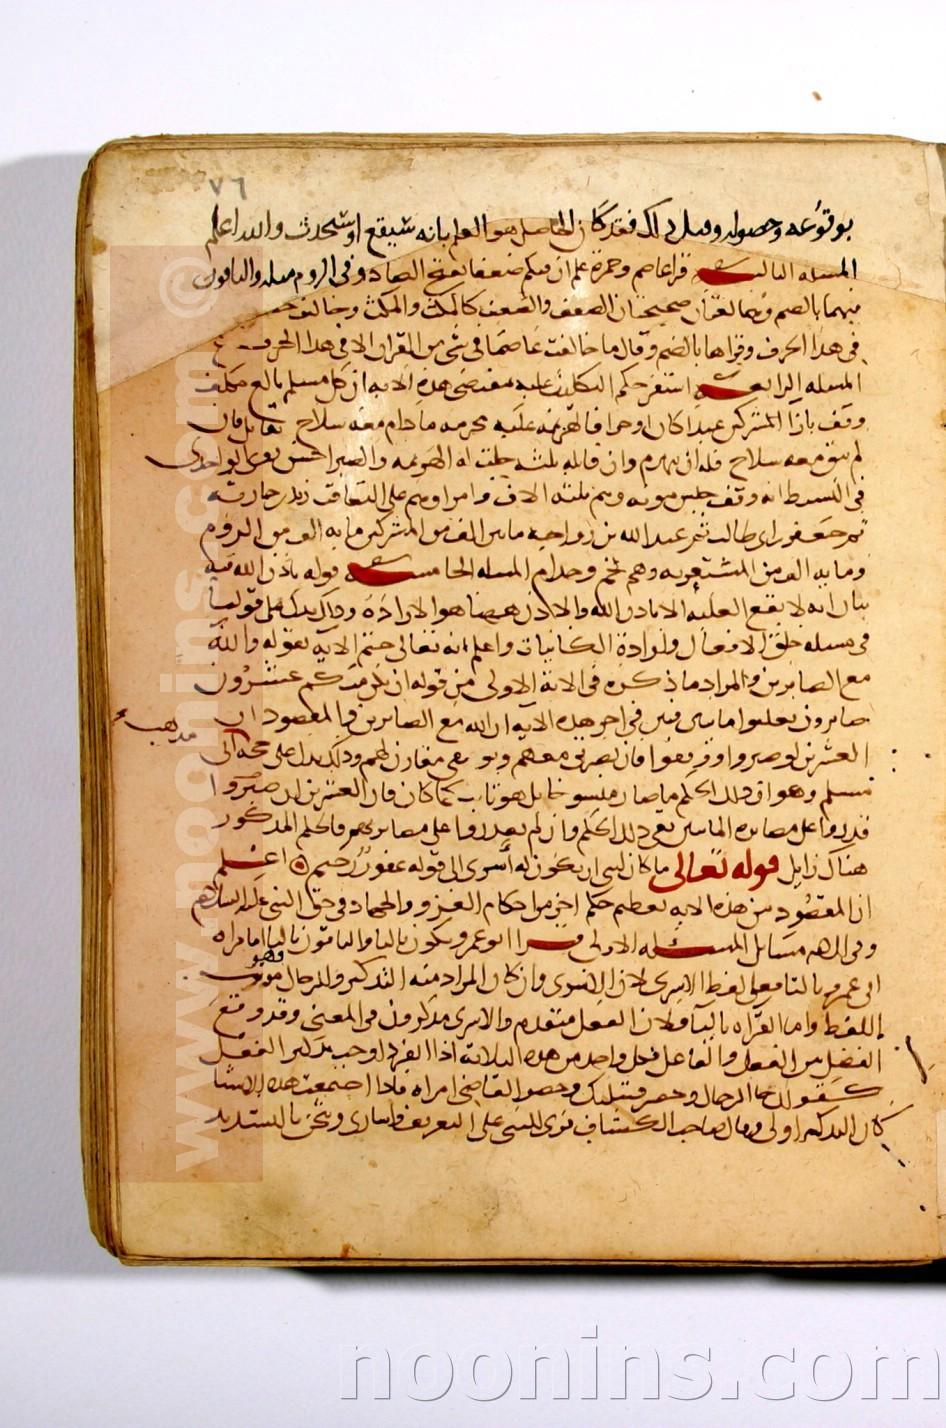 ٧٦
بوقوعه وحصوله وقبل ذلك فقد كان الحاصل هو العلم بانه سيقع او سيحدث والله اعلم
المسله الثالثه قرا عاصم وحمزة علم ان فيكم ضعفا بفتح الضاد وفى الروم مثله والباقون
فيهما بالضم وهما لغتان صحيحتان الضعف والضعف كالمكث والمكث وخالف حفص
فى هذا الحرف وقراها بالضم وقال ما خالفت عاصما فى شى من القران الا فى هذا الحرف
المسله الرابعه استقر حكم التكليف عليه بمقتضى هذه الايه ان كل مسلم بالغ مكلف
وقف بازا المشركين عبدا كان او حرا فالهزيمه عليه محرمه ما دام معه سلاح يقاتل فان
لم يبق معه سلاح فله ان ينهزم وان قاتله ثلثه حلت له الهزيمه والصبر احسن روى الواحدى
فى البسيط انه وقف جيش موته وهم ثلثه الاف وامراوهم على التعاقب زيد بن حارثه
ثم جعفر بن ابى طالب ثم عبد الله بن رواحه فى مايتى الف من المشركين مايه الف من الروم
ومايه الف من المستعربه وهم لخم وجذام المسله الخامسه قوله باذن الله فيه
بيان انه لا يقع الغلبه الا باذن الله والاذن ههنا هو الارادة وذلك يدل على قولنا
فى مسله خلق الافعال وارادة الكاينات واعلم انه تعالى ختم الايه بقوله والله
مع الصابرين والمراد ما ذكره فى الاية الاولى من قوله ان يكن منكم عشرون
صابرون يغلبوا مايتين فبين فى اخر هذه الايه ان الله مع الصابرين والمقصود ان
العشرين لو صبروا ووقفوا فان نصرتى معهم وتوفيقى مقارن لهم وذلك يدل على صحه
مذهب
مسلم وهو ان ذلك الحكم ما صار منسوخا بل هو ثابت كما كان فان العشرين ان صبروا
قدروا على مصابره المايتين بقى ذلك الحكم وان لم يقدروا على مصابرتهم فالحكم المذكور
هناك زايل قوله تعالى ما كان لنبى ان يكون له أسرى الى قوله غفور رحيم اعلم
ان المقصود من هذه الايه تعليم حكم اخر من احكام الغزو والجهاد فى حق النبى عليه السلم
وفى الايه مسايل المسله الاولى قرا ابو عمرو تكون بالتا والباقون باليا اما قراه
ابى عمرو بالتا فعلى لفظ الاسرى لان الاسرى وان كان المراد منه التذكير والرجال فهو مونث
اللفظ واما القراه باليا فلان الفعل متقدم والاسرى مذكرون فى المعنى وقد وقع
الفصل بين الفعل والفاعل وكل واحد من هذه الثلاثه اذا انفرد اوجب تذكير الفعل
كقولك جا الرجال وحضر قبيلتك وحضر القاضى امراه فاذا اجتمعت هذه الاشيا
كان التذكير اولى وقال صاحب الكشاف قرى للنبى على التعريف واسارى ويثخن بالتشديد
www.noonins.com ©
noonins.com